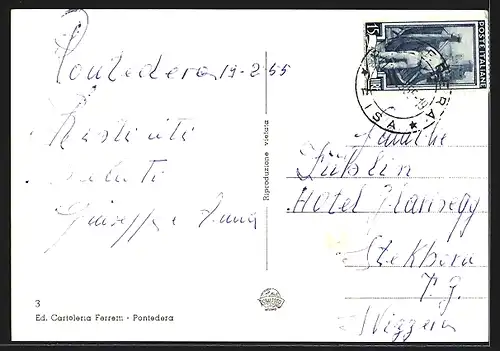 Pontedera 19-2-55
Distinti
saluti
Giuseppe e Anna
3
Ed. Cartoleria Ferretti - Pontedera
Riproduzione vietata
15
POSTE ITALIANE
PISA
Familie
Füßlin
Hotel Glarisegg
Steckborn
T. G.
Svizzera